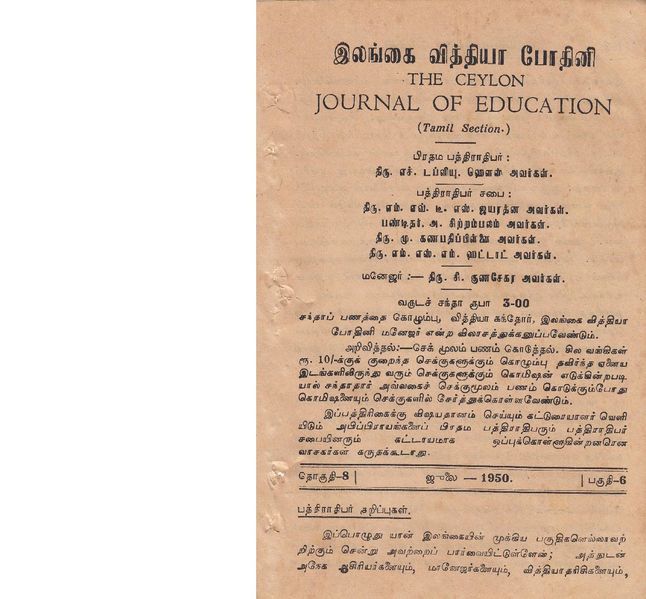 இலங்கை வித்தியா போதினி
THE CEYLON
JOURNAL OF EDUCATION
(Tamil Section.)
பிரதம பத்திராதிபர் :
திரு. எச். டப்ளியு. ஹௌஸ் அவர்கள்.
பத்திராதிபர் சபை :
திரு. எம். எவ். டீ. எஸ். ஜயரத்ன அவர்கள்.
பண்டிதர். அ. சிற்றம்பலம் அவர்கள்.
திரு. மு. கணபதிப்பிள்ளை அவர்கள்.
திரு. எம். எஸ். எம். ஹட்டாட் அவர்கள்.
மனேஜர் :— திரு. சி. குணசேகர அவர்கள்.
வருடச் சந்தா ரூபா 3-00
சந்தாப் பணத்தை கொழும்பு, வித்தியா கந்தோர், இலங்கை வித்தியா
போதினி மனேஜர் என்ற விலாசத்துக்கனுப்பவேண்டும்.
அறிவித்தல்:—செக் மூலம் பணம் கொடுத்தல். சில வங்கிகள்
ரூ. 10/-க்குக் குறைந்த செக்குகளுக்கும் கொழும்பு தவிர்ந்த ஏனைய
இடங்களிலிருந்து வரும் செக்குகளுக்கும் கொமிஷன் எடுக்கின்றபடி
யால் சந்தாதாரர் அவ்வகைச் செக்குமூலம் பணம் கொடுக்கும்போது
கொமிஷனையும் செக்குகளில் சேர்த்துக்கொள்ளவேண்டும்.
இப்பத்திரிகைக்கு விஷயதானம் செய்யும் கட்டுரையாளர் வெளி
யிடும் அபிப்பிராயங்களைப் பிரதம பத்திராதிபரும் பத்திராதிபர்
சபையினரும் கட்டாயமாக ஒப்புக்கொள்ளுகின்றனரென
வாசகர்கள் கருதக்கூடாது.
தொகுதி-8 | ஜுலை — 1950. | பகுதி-6
பத்திராதிபர் குறிப்புகள்.
இப்பொழுது யான் இலங்கையின் முக்கிய பகுதிகளெல்லாவற்
றிற்கும் சென்று அவற்றைப் பார்வையிட்டுள்ளேன்; அத்துடன்
அநேக ஆசிரியர்களையும், மானேஜர்களையும், வித்தியாதரிசிகளையும்,